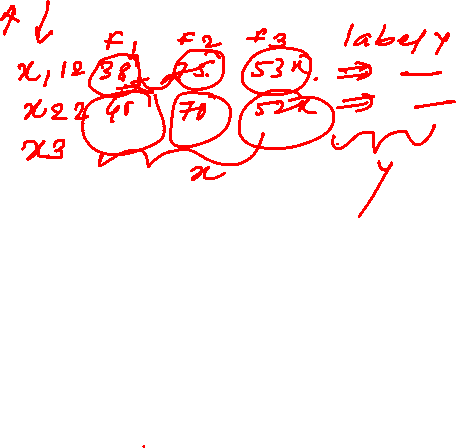 f1 f2 f3 label y
x1 12 38 25 53k. ⇒ —
x2 2 45 70 52k ⇒ —
x3
x
y